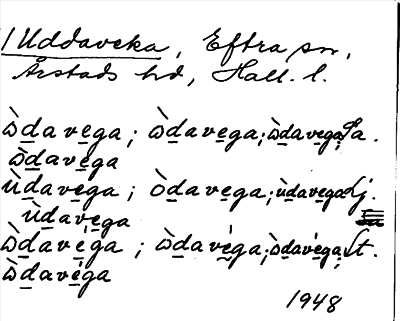 1 Uddaveka, Eftra sn,
Årstads hd, Hall. l.
ὼd̲ave̲ga; ὼd̲ave̲ga; ὼd̲ave̲ga; Sa.
ὼd̲ave̲ga
ùd̲ave̲ga; òd̲ave̲ga; ùd̲ave̲ga Lj.
ùd̲ave̲ga
ὼd̲ave̲ga; ὼd̲avé̲ga; ὼd̲avé̲ga; Lt.
ὼd̲avé̲ga
1948